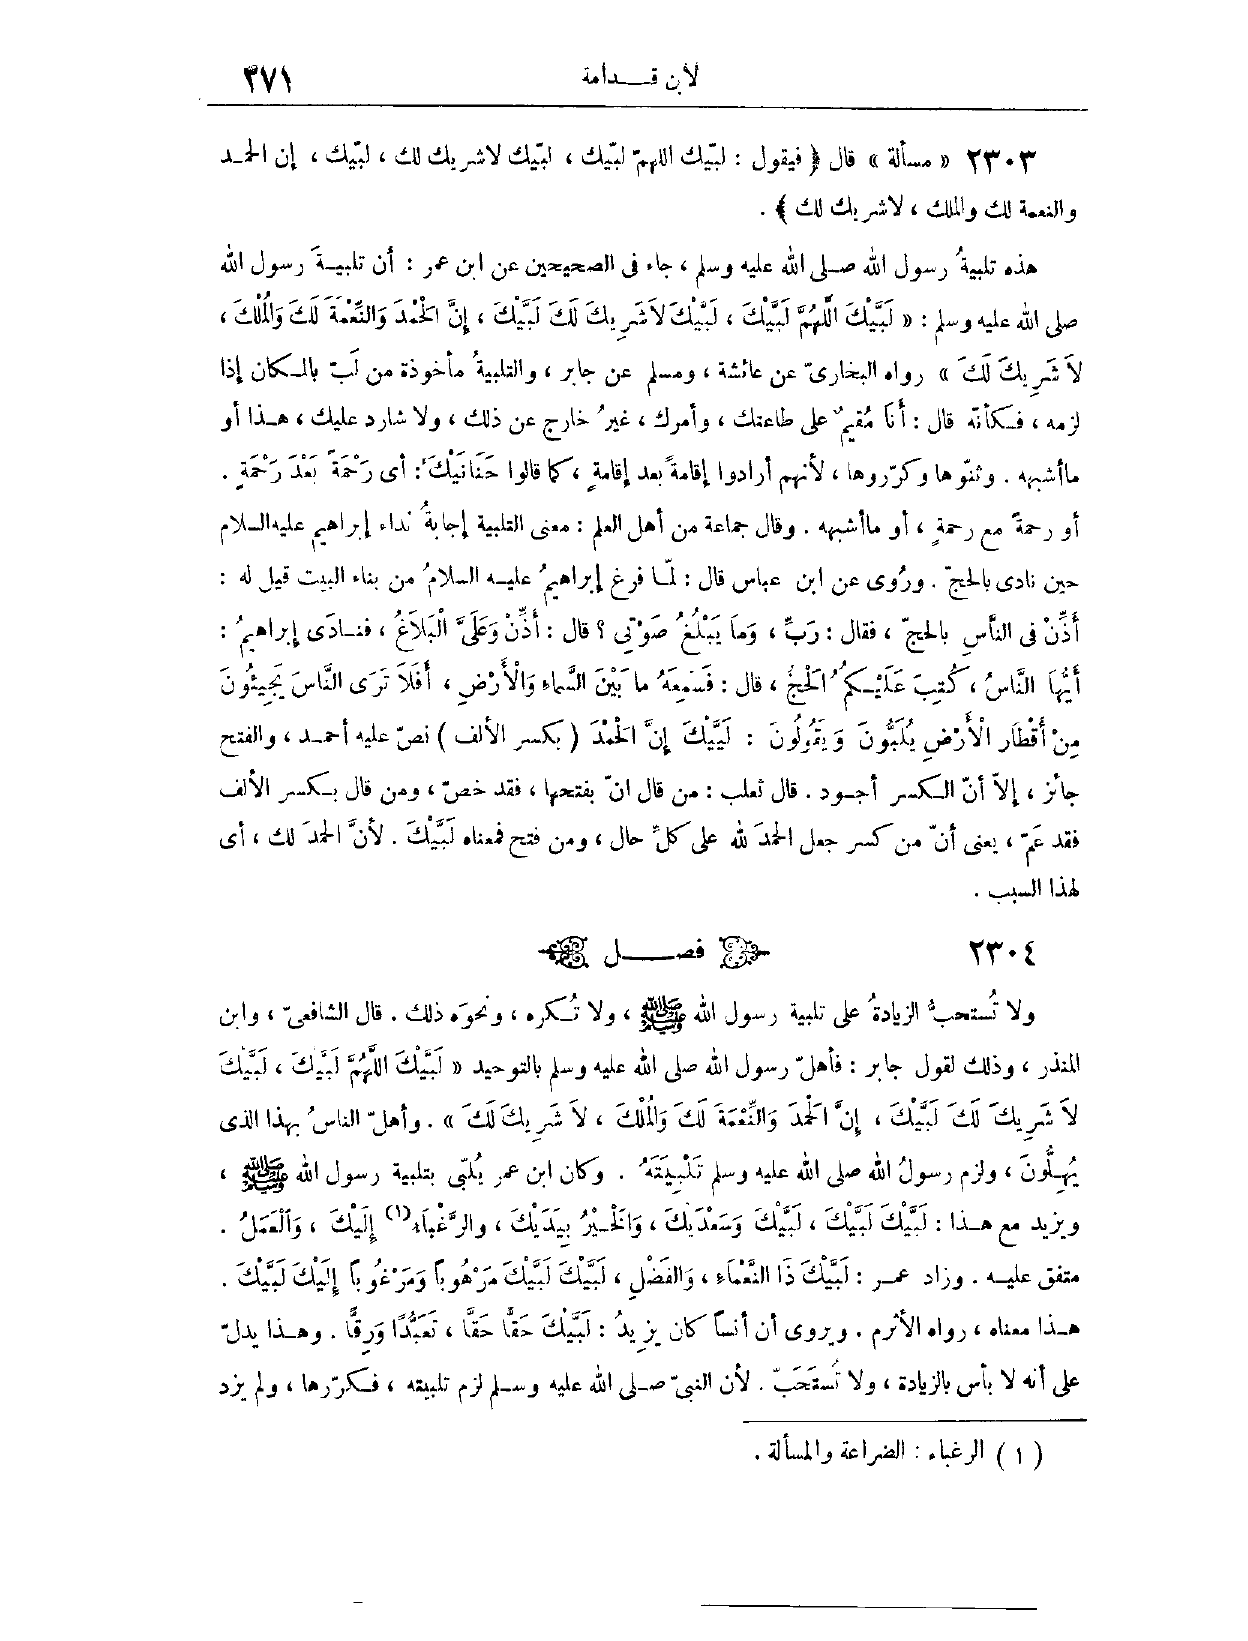 لابن قــدامة ٢٧١
٢٣٠٣ « مسألة » قال ﴿ فيقول : لبّيك اللهمّ لبّيك ، لبّيك لاشريك لك ، لبّيك ، إن الحمـد
والنعمة لك والملك ، لاشريك لك ﴾ .
هذه تلبيةُ رسول الله صـلى الله عليه وسلم ، جاء فى الصحيحين عن ابن عمر : أن تلبيـةَ رسول الله
صلى الله عليه وسلم : « لَبَّيْكَ اللَّهُمَّ لَبَّيْكَ ، لَبَّيْكَ لاَشَرِيكَ لَكَ لَبَّيْكَ ، إِنَّ الْحَمْدَ وَالنِّعْمَةَ لَكَ وَالْمُلْكَ ،
لاَ شَرِيكَ لَكَ » رواه البخارىّ عن عائشة ، ومسلم عن جابر ، والتلبيةُ مأخوذة من لَبّ بالمـكان إذا
لزمه ، فـكأنّه قال : أَنَا مُقيمٌ على طاعتك ، وأمرك ، غيرُ خارج عن ذلك ، ولا شارد عليك ، هـذا أو
ماأشبهه . وثنّوها وكرّروها ، لأنهم أرادوا إقامةً بعد إقامةٍ ، كما قالوا حَنَانَيْكَ : أى رَحْمَةً بَعْدَ رَحْمَةٍ .
أو رحمةً مع رحمةٍ ، أو ماأشبهه . وقال جماعة من أهل العلم : معنى التلبية إجابةُ نداء إبراهيم عليه السلام
حين نادى بالحجّ . ورُوى عن ابن عباس قال : لمّـا فرغ إبراهيمُ عليـه السلامُ من بناء البيت قيل له :
أَذِّنْ فى النَّاسِ بالحجّ ، فقال : رَبِّ ، وَمَا يَبْلُغُ صَوْتِى ؟ قال : أَذِّنْ وَعَلَىَّ الْبَلاَغُ ، فنـادَى إبراهيمُ :
أَيُّهَا النَّاسُ ، كُتِبَ عَلَيْـكُمُ الْحَجُّ ، قال : فَسَمِعَهُ ما بَيْنَ السَّماءِ وَالْأَرْضِ ، أَفَلاَ تَرَى النَّاسَ يَجِيئُونَ
مِنْ أَقْطَارِ الْأَرْضِ يُلَبُّونَ وَيَقُولُونَ : لَبَّيْكَ إِنَّ الْحَمْدَ ( بكسر الألف ) نصّ عليه أحمـد ، والفتح
جائز ، إلاّ أنّ الـكسر أجـود . قال ثعلب : من قال انّ بفتحها ، فقد خصّ ، ومن قال بـكسر الألف
فقد عَمّ ، يعنى أنّ من كسر جعل الحمدَ لله على كلِّ حال ، ومن فتح فمعناه لَبَّيْكَ . لأنَّ الحمدَ لك ، أى
لهذا السبب .
٢٣٠٤ فصـــل
ولا تُستحبُّ الزيادةُ على تلبية رسول الله ﷺ ، ولا تُـكره ، ونحوَه ذلك . قال الشافعىّ ، وابن
المنذر ، وذلك لقول جابر : فأهلّ رسول الله صلى الله عليه وسلم بالتوحيد « لَبَّيْكَ اللَّهُمَّ لَبَّيْكَ ، لَبَّيْكَ
لاَ شَرِيكَ لَكَ لَبَّيْكَ ، إِنَّ الْحَمْدَ وَالنِّعْمَةَ لَكَ وَالْمُلْكَ ، لاَ شَرِيكَ لَكَ » . وأهلّ الناسُ بهذا الذى
يُهِلُّونَ ، ولزم رسولُ الله صلى الله عليه وسلم تَلْبِيَتَهُ . وكان ابن عمر يُلبّى بتلبية رسول الله ﷺ ،
ويزيد مع هـذا : لَبَّيْكَ لَبَّيْكَ ، لَبَّيْكَ وَسَعْدَيْكَ ، وَالْخَيْرُ بِيَدَيْكَ ، والرَّغْبَاءِ(١) إِلَيْكَ ، وَالْعَمَلُ .
متفق عليـه . وزاد عمـر : لَبَّيْكَ ذَا النَّعْمَاءِ ، وَالفَضْلِ ، لَبَّيْكَ لَبَّيْكَ مَرْهُوباً وَمَرْغُوباً إِلَيْكَ لَبَّيْكَ .
هـذا معناه ، رواه الأثرم . ويروى أن أنساً كان يزيدُ : لَبَّيْكَ حَقًّا حَقًّا ، تَعَبُّدًا وَرِقًّا . وهـذا يدلّ
على أنه لا بأس بالزيادة ، ولا تُستَحَبّ . لأن النبىّ صـلى الله عليه وسـلم لزم تلبيته ، فـكرّرها ، ولم يزد
( ١ ) الرغباء : الضراعة والمسألة .